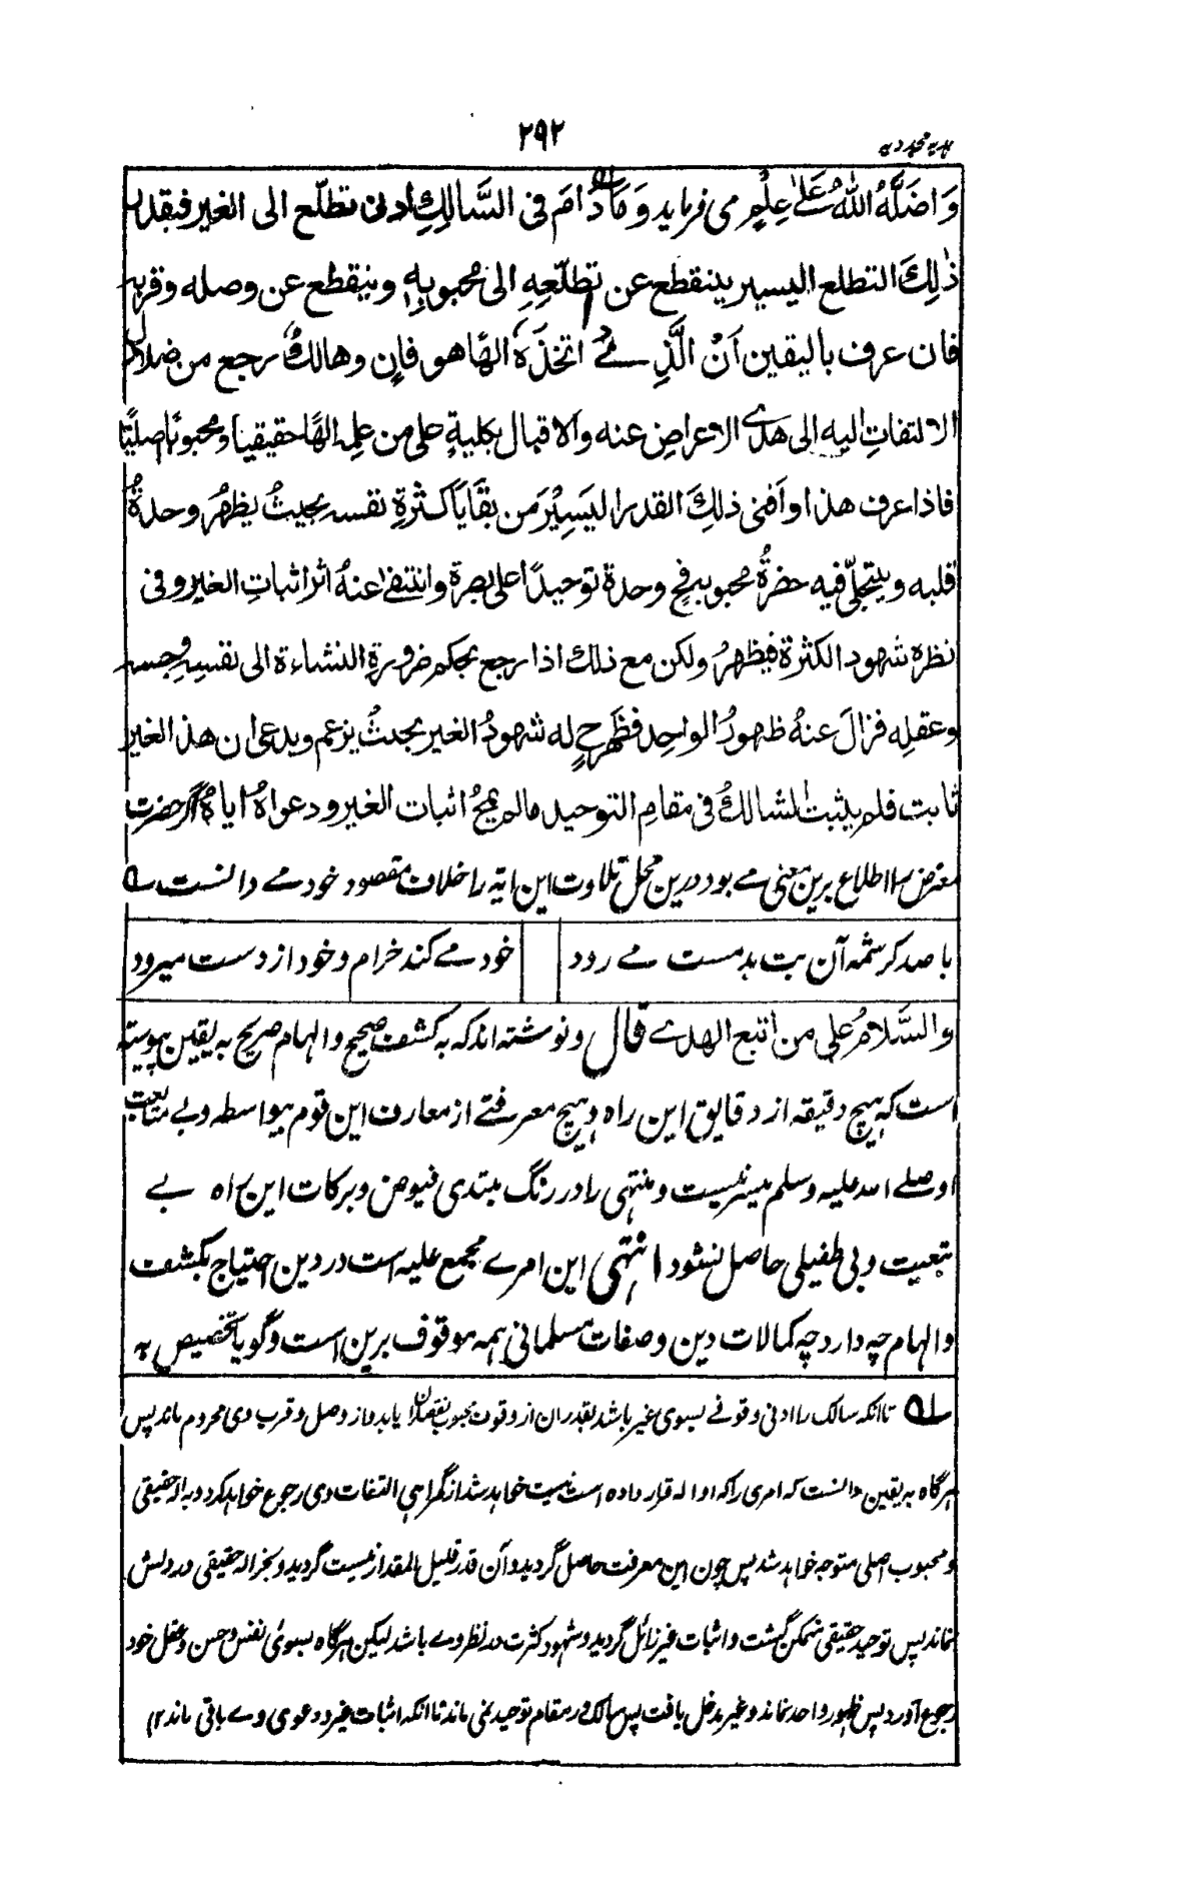 ۲۹۲
ہدیہ مجددیہ
وَاضَلَّهُ اللّٰهُ عَلٰی عِلْمٍ می فرماید وَمَادَامَ فی السَّالِكِ ادنی تطلّع الی الغیر فبقدر
ذٰلِكَ التطلع الیسیر ینقطع عن تطلّعِهِ الی محبوبِهِ وینقطع عن وصله وقربه
فان عرف بالیقین اَنَّ الَّذِی اتخذَهٗ الهًا هو فانٍ وهالكٌ رجع من ضلال
الالتفاتِ الیه الی هدی الاعراضِ عنه والاقبال بکلیةٍ علی من علمه الهًا حقیقیا ومحبوبًا اصلیًّا
فاذا عرف هذا وافنی ذلِكَ القدر الیَسِیْرَ من بقَایَا کثرةِ نفسه بحیثُ یظهرُ وحدةُ
قلبه ویتجلّی فیه حضرةُ محبوبه فح وحدة توحیدًا علی بصرة وانتفٰی عنهُ اثر اثباتِ الغیر وفی
نظره شهود الکثرة فیظهرُ ولکن مع ذلك اذا رجع بحکم ضرورةِ النشاءة الی نفسِهِ وحسه
وعقلِه فزالَ عنهُ ظهورُ الواحِد فظَهَر حٍ له شهودُ الغیر بحیثُ یزعم ویدعی ان هذ الغیر
ثابت فلم یثبت لسالكُ فی مقامِ التوحید مالم یمحُ اثبات الغیر ودعواهُ ایاهُ اگر حضرت
معترض را اطلاع برین معنی مے بود درین محل تلاوت این ایه را خلاف مقصود خود مے دانست ؎
با صد کرشمه آن بت بدمست مے رود خود مے کند خرام و خود از دست میرود
والسَّلامُ علی من اتبع الهدی قال و نوشته اند که به کشف صحیح و الهام صریح به یقین پیوسته
است که هیچ دقیقه از دقایق این راه و هیچ معرفتے از معارف این قوم بیواسطه و بے متابعت
او صلے الله علیه وسلم میسر نیست و منتهی را در رنگ مبتدی فیوض و برکات این راه بے
تبعیت و بی طفیلی حاصل نشود انتهی این امرے مجمع علیه است در دین احتیاج بکشف
و الهام چه دارد چه کمالات دین و صفات مسلمانی همه موقوف برین است و گویا تخصیص به
؎ تا آنکه سالک را ادنی وقوفے بسوی غیر باشد بقدر ان از وقوف محبوب نقصان یابد و از وصل و قرب وی محروم ماند پس
هرگاه به یقین دانست که امری را که او اله قرار داده است نیست خواهد شد از گمراهی التفات وی رجوع خواهد کرد و به اله حقیقی
و محبوب اصلی متوجه خواهد شد پس چون این معرفت حاصل گردید و آن قدر قلیل المقدار نیست گردید و بجز اله حقیقی در دلش
نماند پس توحید حقیقی متمکن گشت و اثبات غیر زائل گردید و شهود کثرت در نظر وے باشد لیکن هرگاه بسوئ نفس و حس و عقل خود
رجوع آورد پس ظهور واحد نماند و غیر مدخل یافت پس سالک در مقام توحید نمی ماند تا آنکه اثبات غیر و دعوی وے باقی ماند ۱۲